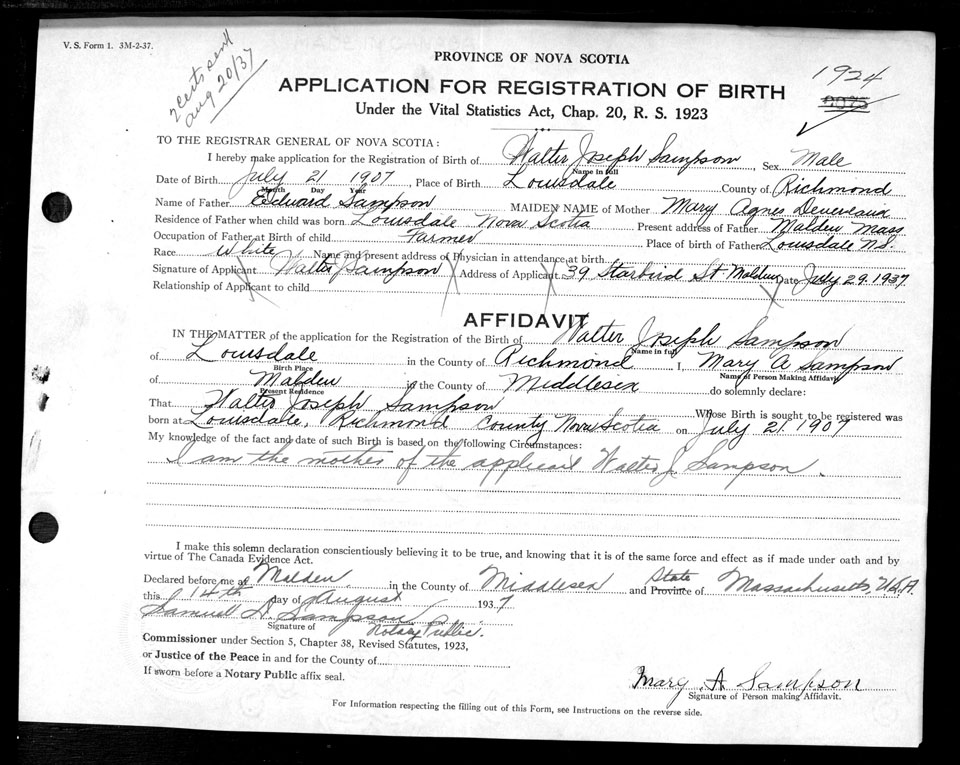 V. S. Form 1. 3M-2-37.
2 certs sent
aug 20/37
PROVINCE OF NOVA SCOTIA
1924
APPLICATION FOR REGISTRATION OF BIRTH
Under the Vital Statistics Act, Chap. 20, R. S. 1923
TO THE REGISTRAR GENERAL OF NOVA SCOTIA:
I hereby make application for the Registration of Birth of Walter Joseph Sampson, Sex Male
Name in full
Date of Birth July 21 1907, Place of Birth Louisdale County of Richmond
Month Day Year
Name of Father Edward Sampson MAIDEN NAME of Mother Mary Agnes Deveveaux
Residence of Father when child was born Louisdale Nova Scotia Present address of Father Malden Mass
Occupation of Father at Birth of child Farmer Place of birth of Father Louisdale N.S.
Race White Name and present address of Physician in attendance at birth
Signature of Applicant Walter J Sampson Address of Applicant 39 Starbird St Malden Date July 29. 1937.
Relationship of Applicant to child
AFFIDAVIT
IN THE MATTER of the application for the Registration of the Birth of Walter Joseph Sampson
Name in full
of Louisdale in the County of Richmond I, Mary A Sampson
Birth Place Name of Person Making Affidavit
of Malden in the County of Middlesex do solemnly declare:
Present Residence
That Walter Joseph Sampson Whose Birth is sought to be registered was
born at Louisdale, Richmond County Nova Scotia on July 21. 1907
My knowledge of the fact and date of such Birth is based on the following Circumstances:
I am the mother of the applicant Walter J. Sampson.
I make this solemn declaration conscientiously believing it to be true, and knowing that it is of the same force and effect as if made under oath and by
virtue of The Canada Evidence Act.
Declared before me at Malden in the County of Middlesex State and Province of Massachusetts, U.S.A.
this 14th day of August 1937
Samuel Sampson
Signature of Notary Public.
Commissioner under Section 5, Chapter 38, Revised Statutes, 1923,
or Justice of the Peace in and for the County of
If sworn before a Notary Public affix seal.
Mary A Sampson
Signature of Person making Affidavit.
For Information respecting the filling out of this Form, see Instructions on the reverse side.